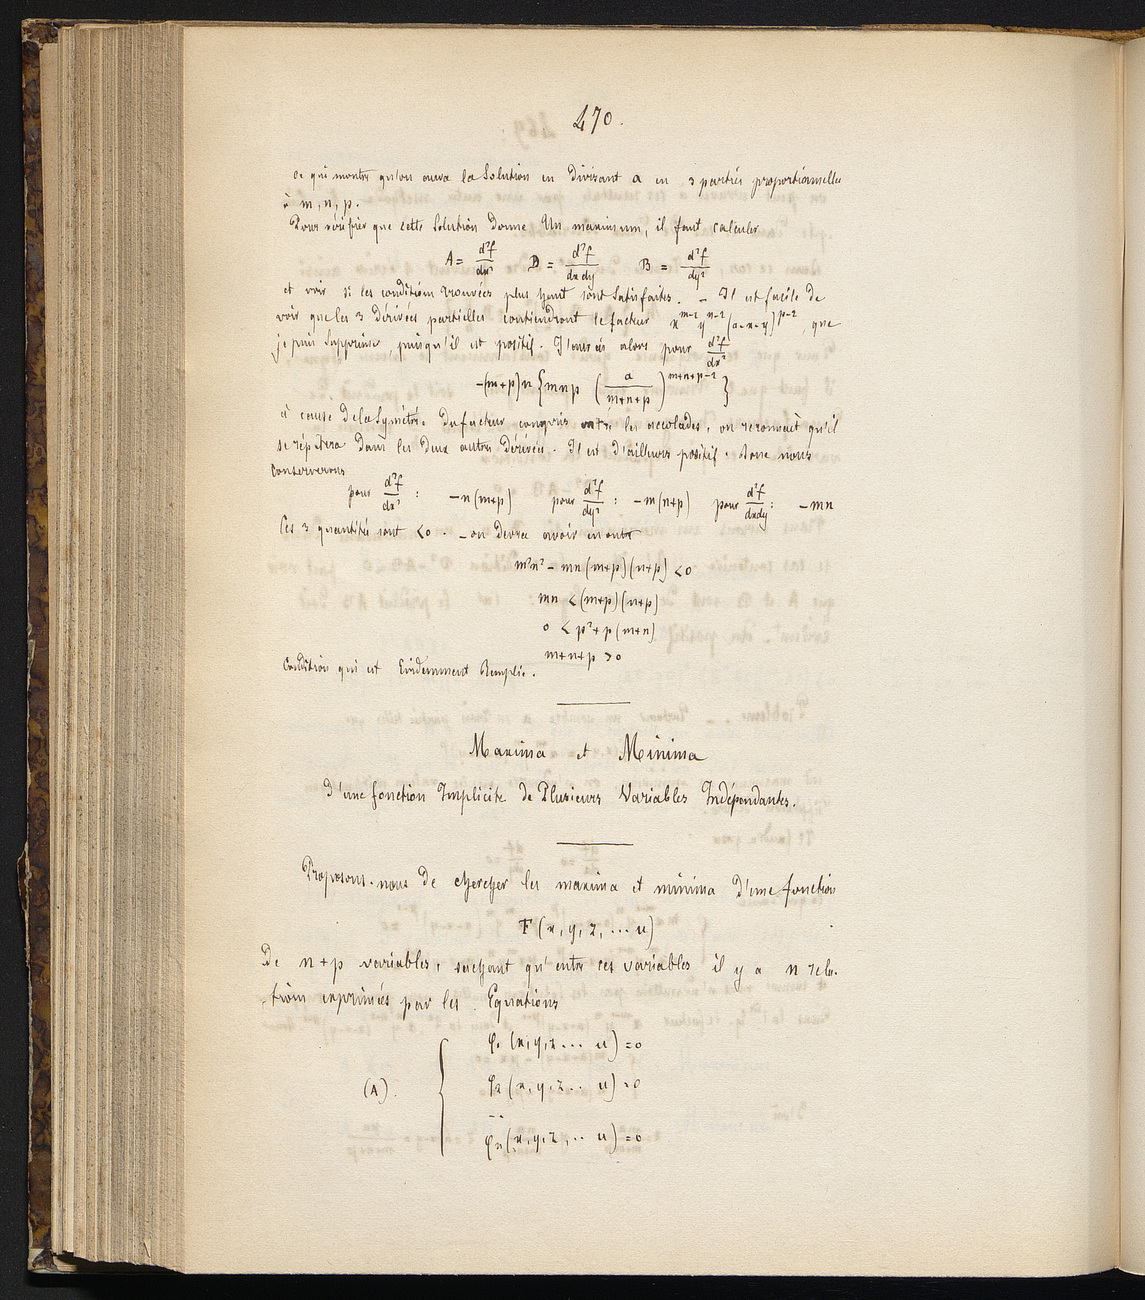 470.
ce qui montre qu'on aura la Solution en Divisant a en 3 parties proportionnelles
à m, n, p.
Pour vérifier que cette Solution donne Un maximum, il faut calculer
A = d²f/dx² D = d²f/dxdy B = d²f/dy²
et voir si les conditions trouvées plus haut sont Satisfaites. – Il est facile de
voir que les 3 dérivées partielles contiendront le facteur x^{m-2} y^{n-2} (a-x-y)^{p-2}, que
je puis Supprimer, puisqu'il est positif. J'aurai alors pour d²f/dx²
-(m+p)n {mnp (a/(m+n+p))^{m+n+p-2}}
à cause de la Symétrie du facteur compris entre les accolades, on reconnait qu'il
se répètera Dans les Deux autres Dérivées. Il est d'ailleurs positif. Donc nous
Conserverons
pour d²f/dx² : -n(m+p) pour d²f/dy² : -m(n+p) pour d²f/dxdy : -mn
Ces 3 quantités sont <0. – on Devra avoir en outre
m²n² - mn(m+p)(n+p) <0
mn < (m+p)(n+p)
0 < p² + p(m+n)
m+n+p >0
Condition qui est Evidemment Remplie.
Maxima et Minima
d'une fonction Implicite de Plusieurs Variables Indépendantes.
Proposons-nous De chercher les maxima et minima D'une fonction
F(x, y, z, ... u)
De n+p variables, sachant qu'entre ces variables il y a n rela-
-tions exprimées par les Equations
(A). { φ₁(x, y, z ... u) = 0
φ₂(x, y, z ... u) = 0
..
φₙ(x, y, z, .. u) = 0